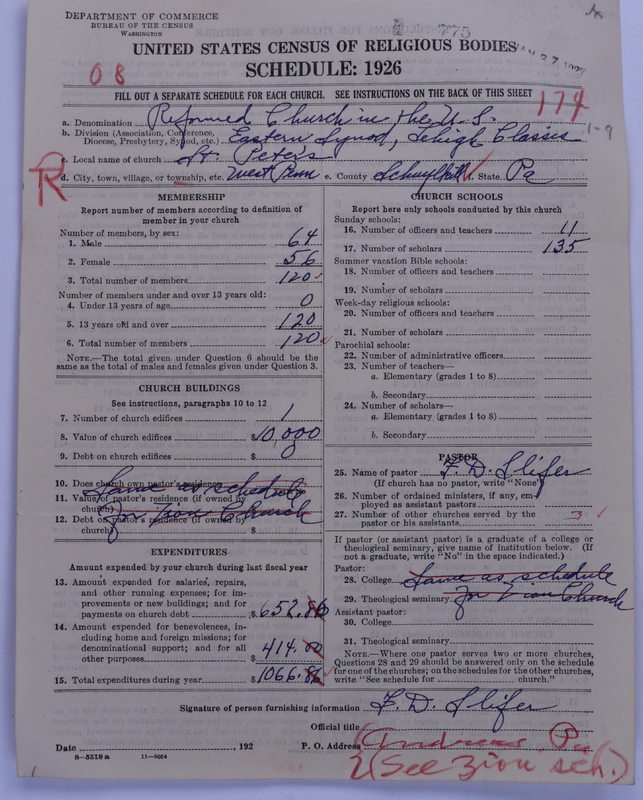 DEPARTMENT OF COMMERCE
BUREAU OF THE CENSUS
WASHINGTON
775
UNITED STATES CENSUS OF RELIGIOUS BODIES
SCHEDULE: 1926
08
FILL OUT A SEPARATE SCHEDULE FOR EACH CHURCH. SEE INSTRUCTIONS ON THE BACK OF THIS SHEET
174
a. Denomination Reformed Church in the U.S.
1-9
b. Division (Association, Conference, Diocese, Presbytery, Synod, etc.) Eastern Synod, Lehigh Classis
c. Local name of church St. Peter's
R
d. City, town, village, or township, etc. West Penn e. County Schuylkill f. State Pa
MEMBERSHIP
Report number of members according to definition of
member in your church
Number of members, by sex:
1. Male 64
2. Female 56
3. Total number of members 120
Number of members under and over 13 years old:
4. Under 13 years of age 0
5. 13 years old and over 120
6. Total number of members 120
NOTE.—The total given under Question 6 should be the
same as the total of males and females given under Question 3.
CHURCH BUILDINGS
See instructions, paragraphs 10 to 12
7. Number of church edifices 1
8. Value of church edifices $10,000
9. Debt on church edifices $ 0
10. Does church own pastor's residence
11. Value of pastor's residence (if owned by
church)
12. Debt on pastor's residence (if owned by
church)
Same as schedule
for Zion Church
EXPENDITURES
Amount expended by your church during last fiscal year
13. Amount expended for salaries, repairs,
and other running expenses; for im-
provements or new buildings; and for
payments on church debt $652.86
14. Amount expended for benevolences, in-
cluding home and foreign missions; for
denominational support; and for all
other purposes $414.00
15. Total expenditures during year $1066.86
CHURCH SCHOOLS
Report here only schools conducted by this church
Sunday schools:
16. Number of officers and teachers 11
17. Number of scholars 135
Summer vacation Bible schools:
18. Number of officers and teachers
19. Number of scholars
Week-day religious schools:
20. Number of officers and teachers
21. Number of scholars
Parochial schools:
22. Number of administrative officers
23. Number of teachers—
a. Elementary (grades 1 to 8)
b. Secondary
24. Number of scholars—
a. Elementary (grades 1 to 8)
b. Secondary
PASTOR
25. Name of pastor F. D. Slifer
(If church has no pastor, write "None")
26. Number of ordained ministers, if any, em-
ployed as assistant pastors
27. Number of other churches served by the
pastor or his assistants 3
If pastor (or assistant pastor) is a graduate of a college or
theological seminary, give name of institution below. (If
not a graduate, write "No" in the space indicated.)
Pastor:
28. College Same as schedule
29. Theological seminary for Zion Church
Assistant pastor:
30. College
31. Theological seminary
NOTE.—Where one pastor serves two or more churches,
Questions 28 and 29 should be answered only on the schedule
for one of the churches; on the schedules for the other churches,
write "See schedule for ____ church."
Signature of person furnishing information F. D. Slifer
Official title
Date , 192
P. O. Address Andreas, Pa
8—5518a 11—9054
2 (See Zion sch.)